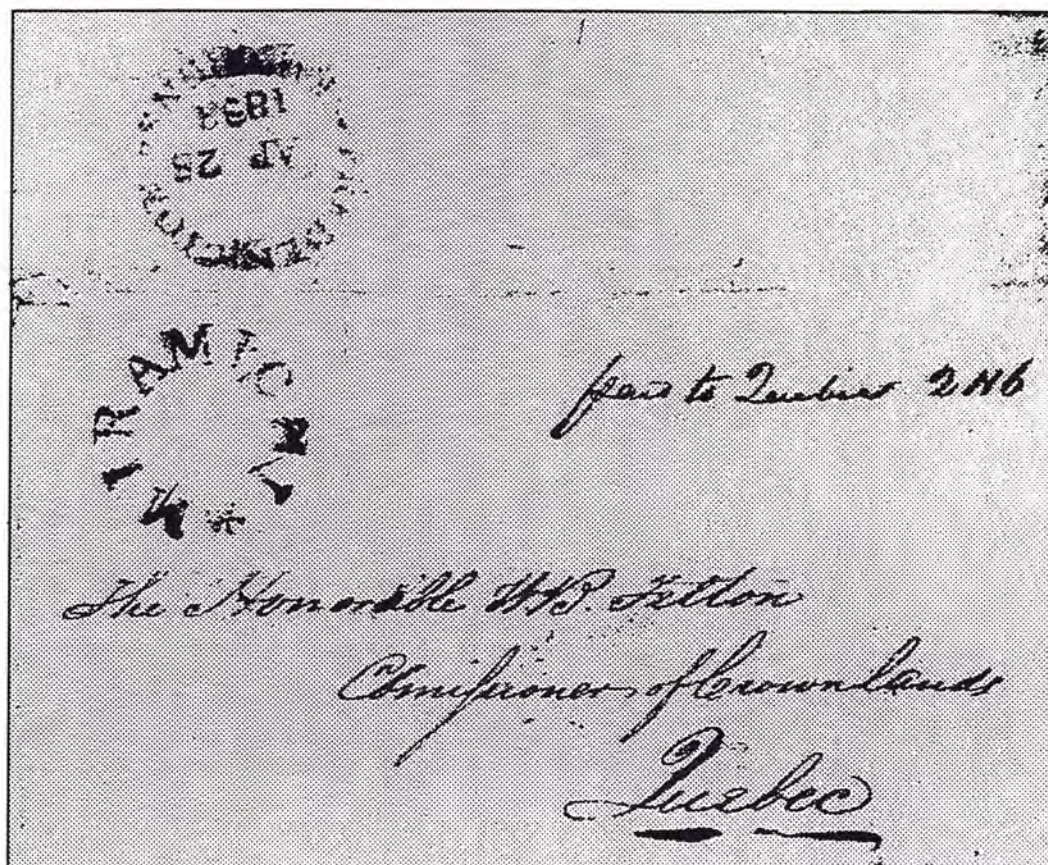 AP 28
MIRAMICHI *
paid to Quebec 2 N6
The Honorable W.B. Felton
Comissioner of Crown Lands
Quebec